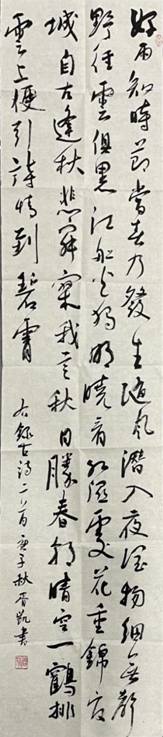 好雨知時節當春乃發生隨風潛入夜潤物細無聲
野徑雲俱黑江船火獨明曉看紅濕處花重錦官
城自古逢秋悲寂寥我言秋日勝春朝晴空一鶴排
雲上便引詩情到碧霄 右錄古詩二首庚子秋